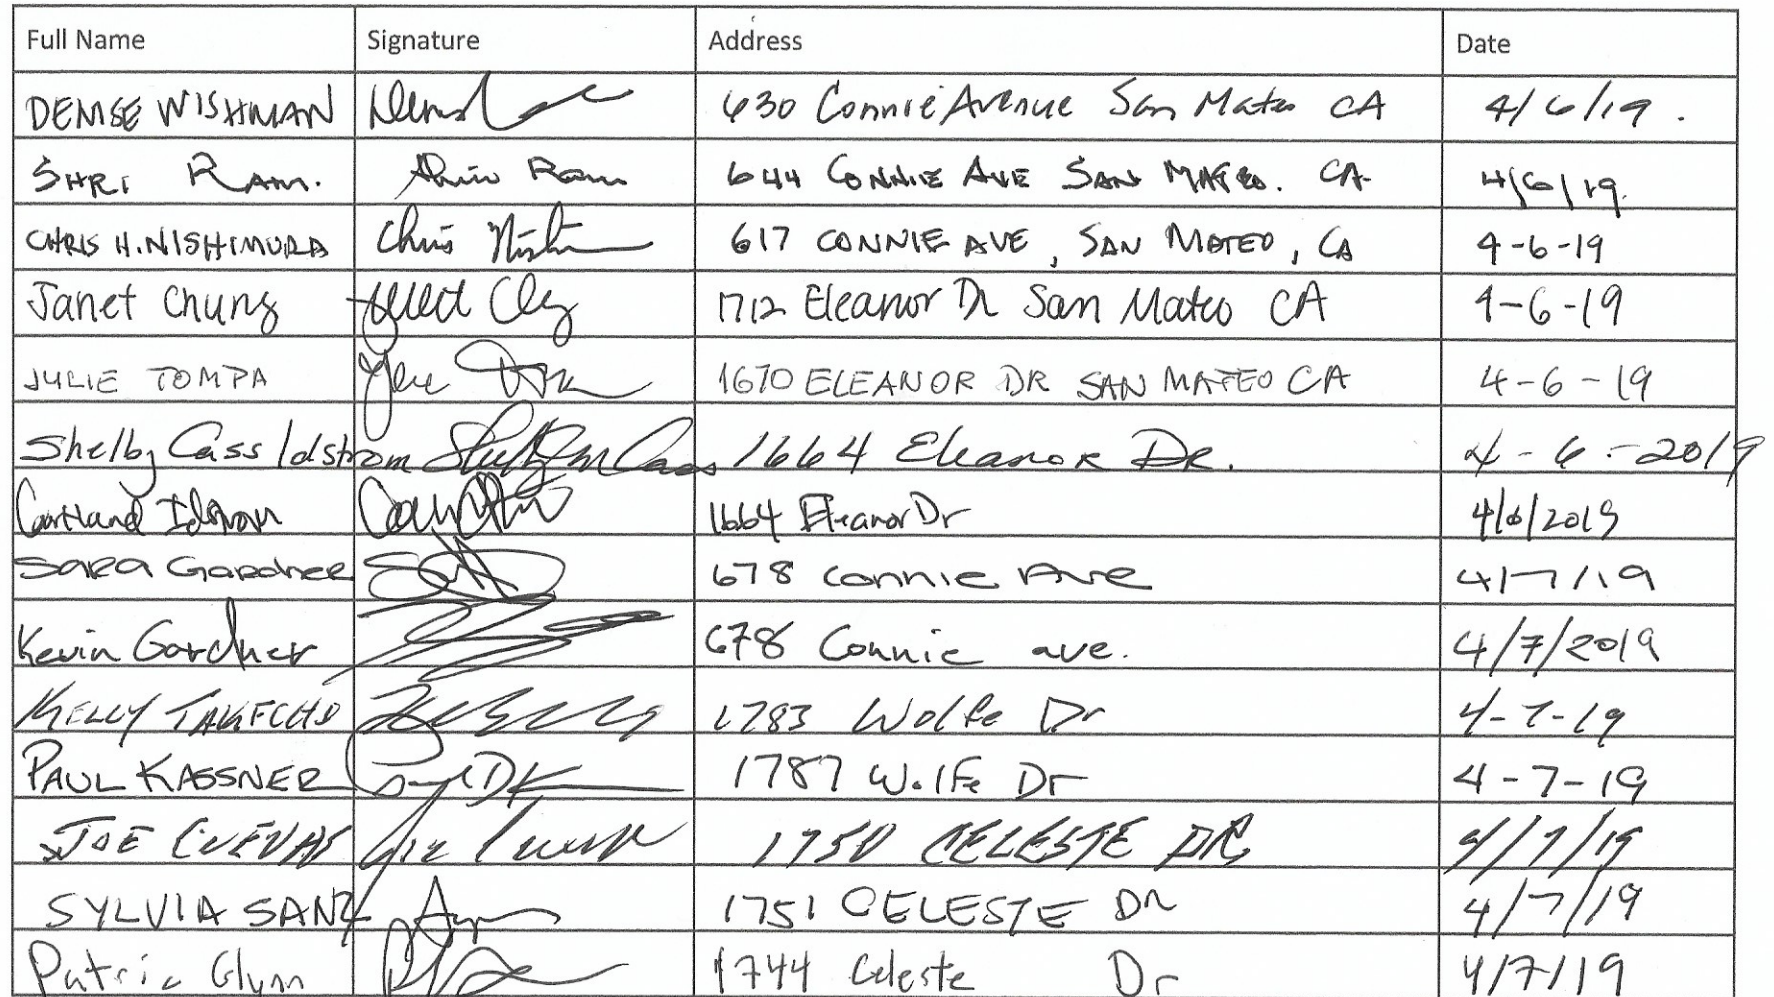 Full Name Signature Address Date
DENISE WISHMAN 630 Connie Avenue San Mateo CA 4/6/19.
SHRI RAM. Shri Ram 644 CONNIE AVE SAN MATEO. CA. 4/6/19.
CHRIS H. NISHIMURA Chris 617 CONNIE AVE, SAN MATEO, CA 4-6-19
Janet Chung 1712 Eleanor Dr San Mateo CA 4-6-19
JULIE TOMPA 1670 ELEANOR DR SAN MATEO CA 4-6-19
Shelby Cass Idstrom 1664 Eleanor Dr. 4-6-2019
Cortland Idstrom 1664 Eleanor Dr 4/6/2019
Sara Gardner 678 Connie Ave 4/7/19
Kevin Gardner 678 Connie ave. 4/7/2019
KELLY 1783 Wolfe Dr 4-7-19
PAUL KASSNER 1787 Wolfe Dr 4-7-19
JOE CUEVAS 1750 CELESTE DR 4/7/19
SYLVIA SANZ 1751 CELESTE DR 4/7/19
Patric Glynn 1744 Celeste Dr 4/7/19